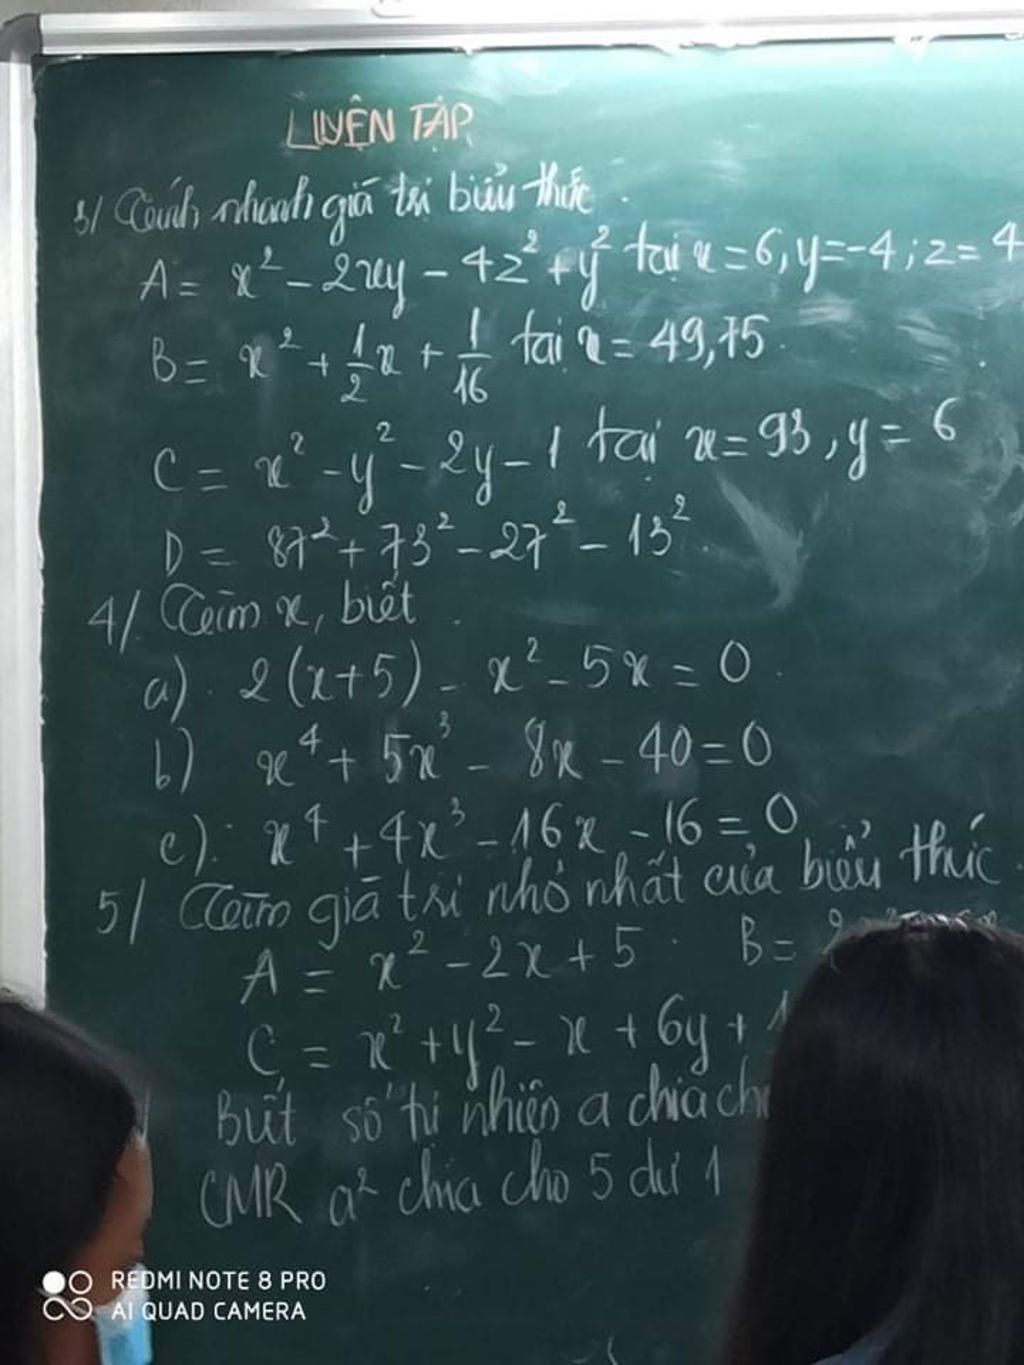 LUYỆN TẬP
3/ Tính nhanh giá trị biểu thức.
A = x² - 2xy - 4z² + y² tại x = 6, y = -4; z = 4
B = x² + 1/2 x + 1/16 tại x = 49,75.
C = x² - y² - 2y - 1 tại x = 93, y = 6
D = 87² + 73² - 27² - 13².
4/. Tìm x, biết.
a). 2(x+5) - x² - 5x = 0.
b) x⁴ + 5x³ - 8x - 40 = 0
c). x⁴ + 4x³ - 16x - 16 = 0
5/ Tìm giá trị nhỏ nhất của biểu thức.
A = x² - 2x + 5. B =
C = x² + y² - x + 6y +
Biết số tự nhiên a chia
CMR a² chia cho 5 dư 1
REDMI NOTE 8 PRO
AI QUAD CAMERA